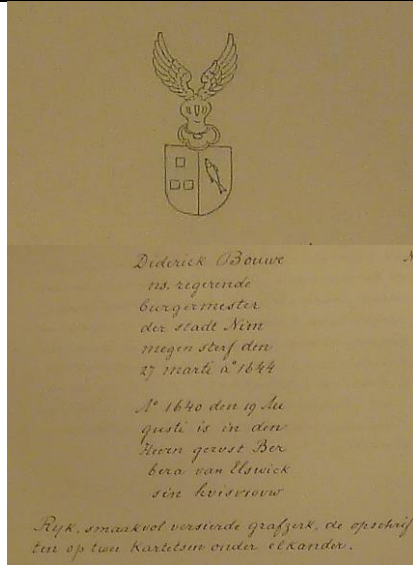 Diderick Bouwe
ns. regerende
burgermester
der stadt Nim
megen sterf den
27 marti a° 1644
A° 1640 den 19 Au
gusti is in den
Heern gerust Ber
bera van Elswick
sin huisvrouw
Ryk, smaakvol versierde grafzerk, de opschrif
ten op twee Kartetsen onder elkander.